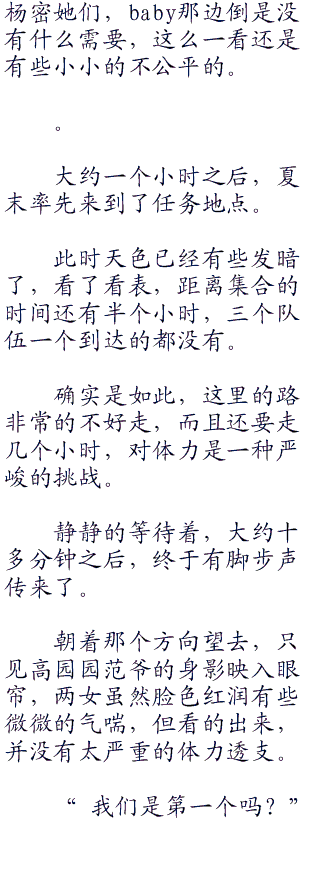 杨密她们，baby那边倒是没
有什么需要，这么一看还是
有些小小的不公平的。
。
大约一个小时之后，夏
末率先来到了任务地点。
此时天色已经有些发暗
了，看了看表，距离集合的
时间还有半个小时，三个队
伍一个到达的都没有。
确实是如此，这里的路
非常的不好走，而且还要走
几个小时，对体力是一种严
峻的挑战。
静静的等待着，大约十
多分钟之后，终于有脚步声
传来了。
朝着那个方向望去，只
见高园园范爷的身影映入眼
帘，两女虽然脸色红润有些
微微的气喘，但看的出来，
并没有太严重的体力透支。
“ 我们是第一个吗？”